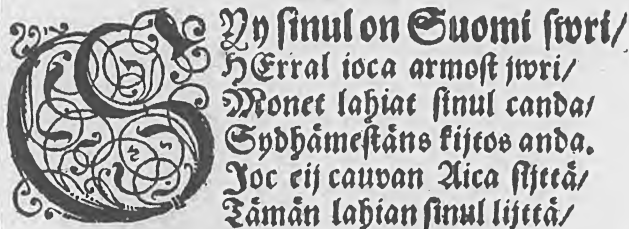 SYy ſinul on Suomi ſwri/
HErral ioca armoſt jwri/
Monet lahiat ſinul canda/
Sydhämeſtäns kijtos anda.
Joc eij cauvan Aica ſijttä/
Tämän lahian ſinul lijttä/